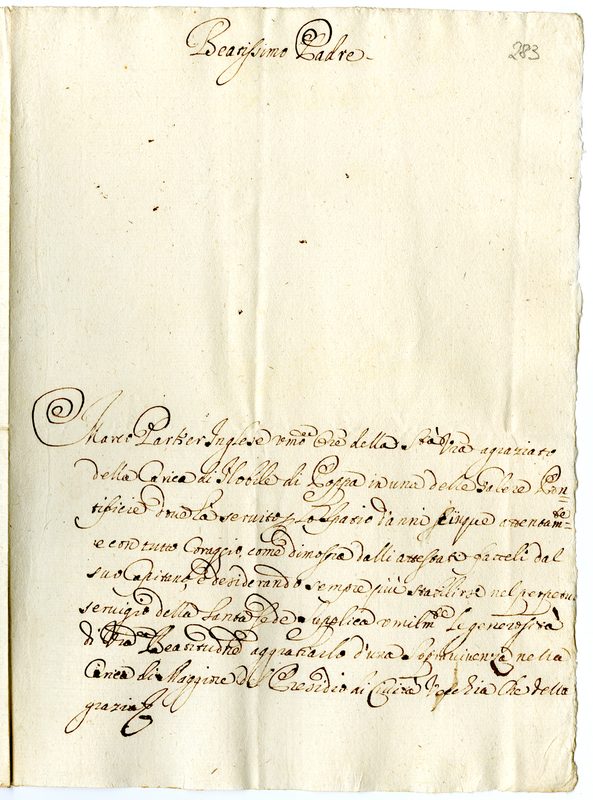 Beatissimo Padre
283
Marco Parker Inglese um̃o Orẽ della Stà Vrã agraziato
della Carica di Nobile di Poppa in una delle Galere Pon=
tificie dove ha servito p lo spazio d'anni cinque attentam=te
e con tutto Coraggio, come dimostra dalli attestati fatteli dal
suo Capitano, e desiderando sempre più stabilirsi nel perpetuo
servigio della Santa Sede supplica umilm̃te la generosità
di Vrã Beatitudine aggratiarlo d'una Sopravivenza nella
Carica di Maggiore del Presidio di Civita Vecchia Che della
grazia